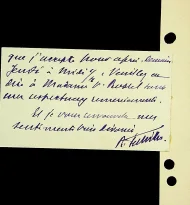 que j'accepte pour après-demain
Jeudi à midi ½. Veuillez en
dire à Madame
mes respectueux remerciements.
Et je vous envoie mes
sentiments bien dévoués